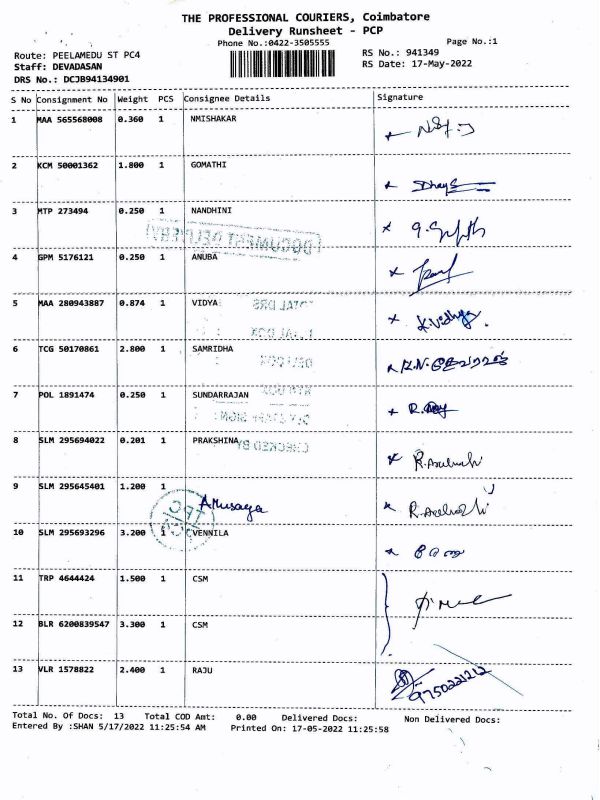 THE PROFESSIONAL COURIERS, Coimbatore
Delivery Runsheet - PCP
Phone No.:0422-3505555
Page No.:1
Route: PEELAMEDU ST PC4
RS No.: 941349
Staff: DEVADASAN
RS Date: 17-May-2022
DRS No.: DCJB94134901
S No Consignment No Weight PCS Consignee Details Signature
1 MAA 565568008 0.360 1 NMISHAKAR
2 KCM 50001362 1.800 1 GOMATHI
3 MTP 273494 0.250 1 NANDHINI
DOCUMENT DELIVERY
4 GPM 5176121 0.250 1 ANUBA
5 MAA 280943887 0.874 1 VIDYA K.Vidhya
TOTAL DRS
6 TCG 50170861 2.800 1 SAMRIDHA
7 POL 1891474 0.250 1 SUNDARRAJAN
8 SLM 295694022 0.201 1 PRAKSHINA
CHECKED BY
9 SLM 295645401 1.200 1
10 SLM 295693296 3.200 1 VENNILA
11 TRP 4644424 1.500 1 CSM
12 BLR 6200839547 3.300 1 CSM
13 VLR 1578822 2.400 1 RAJU
9750221212
Total No. Of Docs: 13 Total COD Amt: 0.00 Delivered Docs: Non Delivered Docs:
Entered By :SHAN 5/17/2022 11:25:54 AM Printed On: 17-05-2022 11:25:58